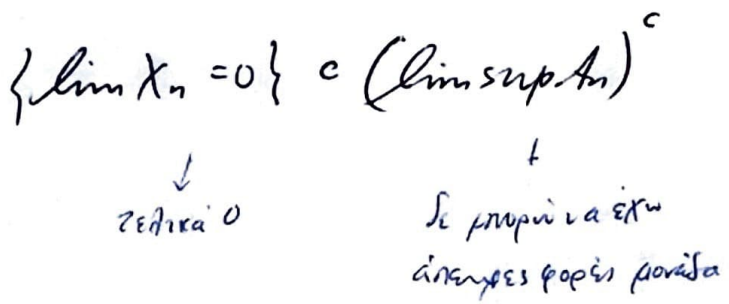 {lim Xₙ = 0} ⊂ (limsup Aₙ)ᶜ
τελικά 0
δε μπορώ να έχω
άπειρες φορές μονάδα